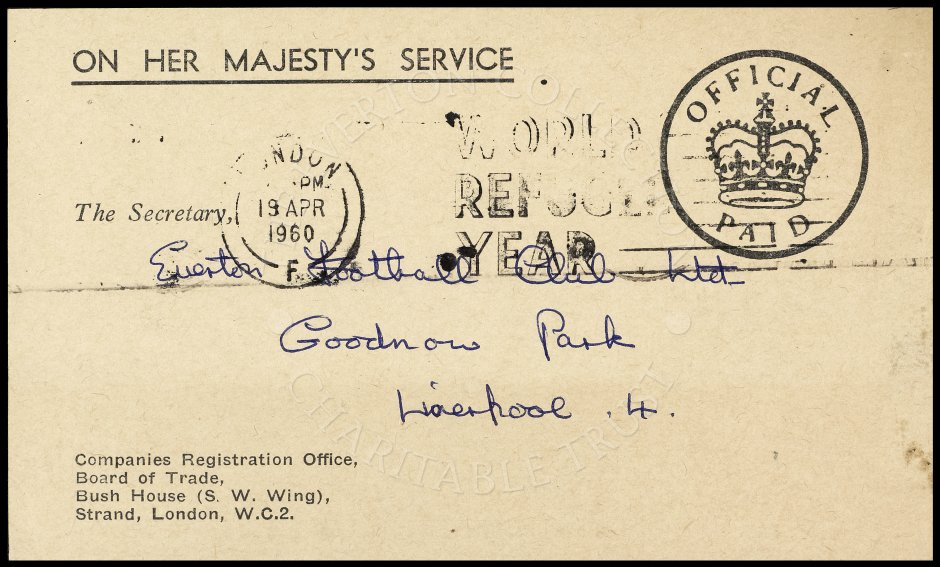 ON HER MAJESTY'S SERVICE
OFFICIAL
PAID
WORLD
REFUGEE
YEAR
LONDON
PM
19 APR
1960
F
The Secretary,
Everton Football Club Ltd
Goodnow Park
Liverpool .4.
Companies Registration Office,
Board of Trade,
Bush House (S. W. Wing),
Strand, London, W.C.2.
EVERTON COLL
CHARITABLE TRUST